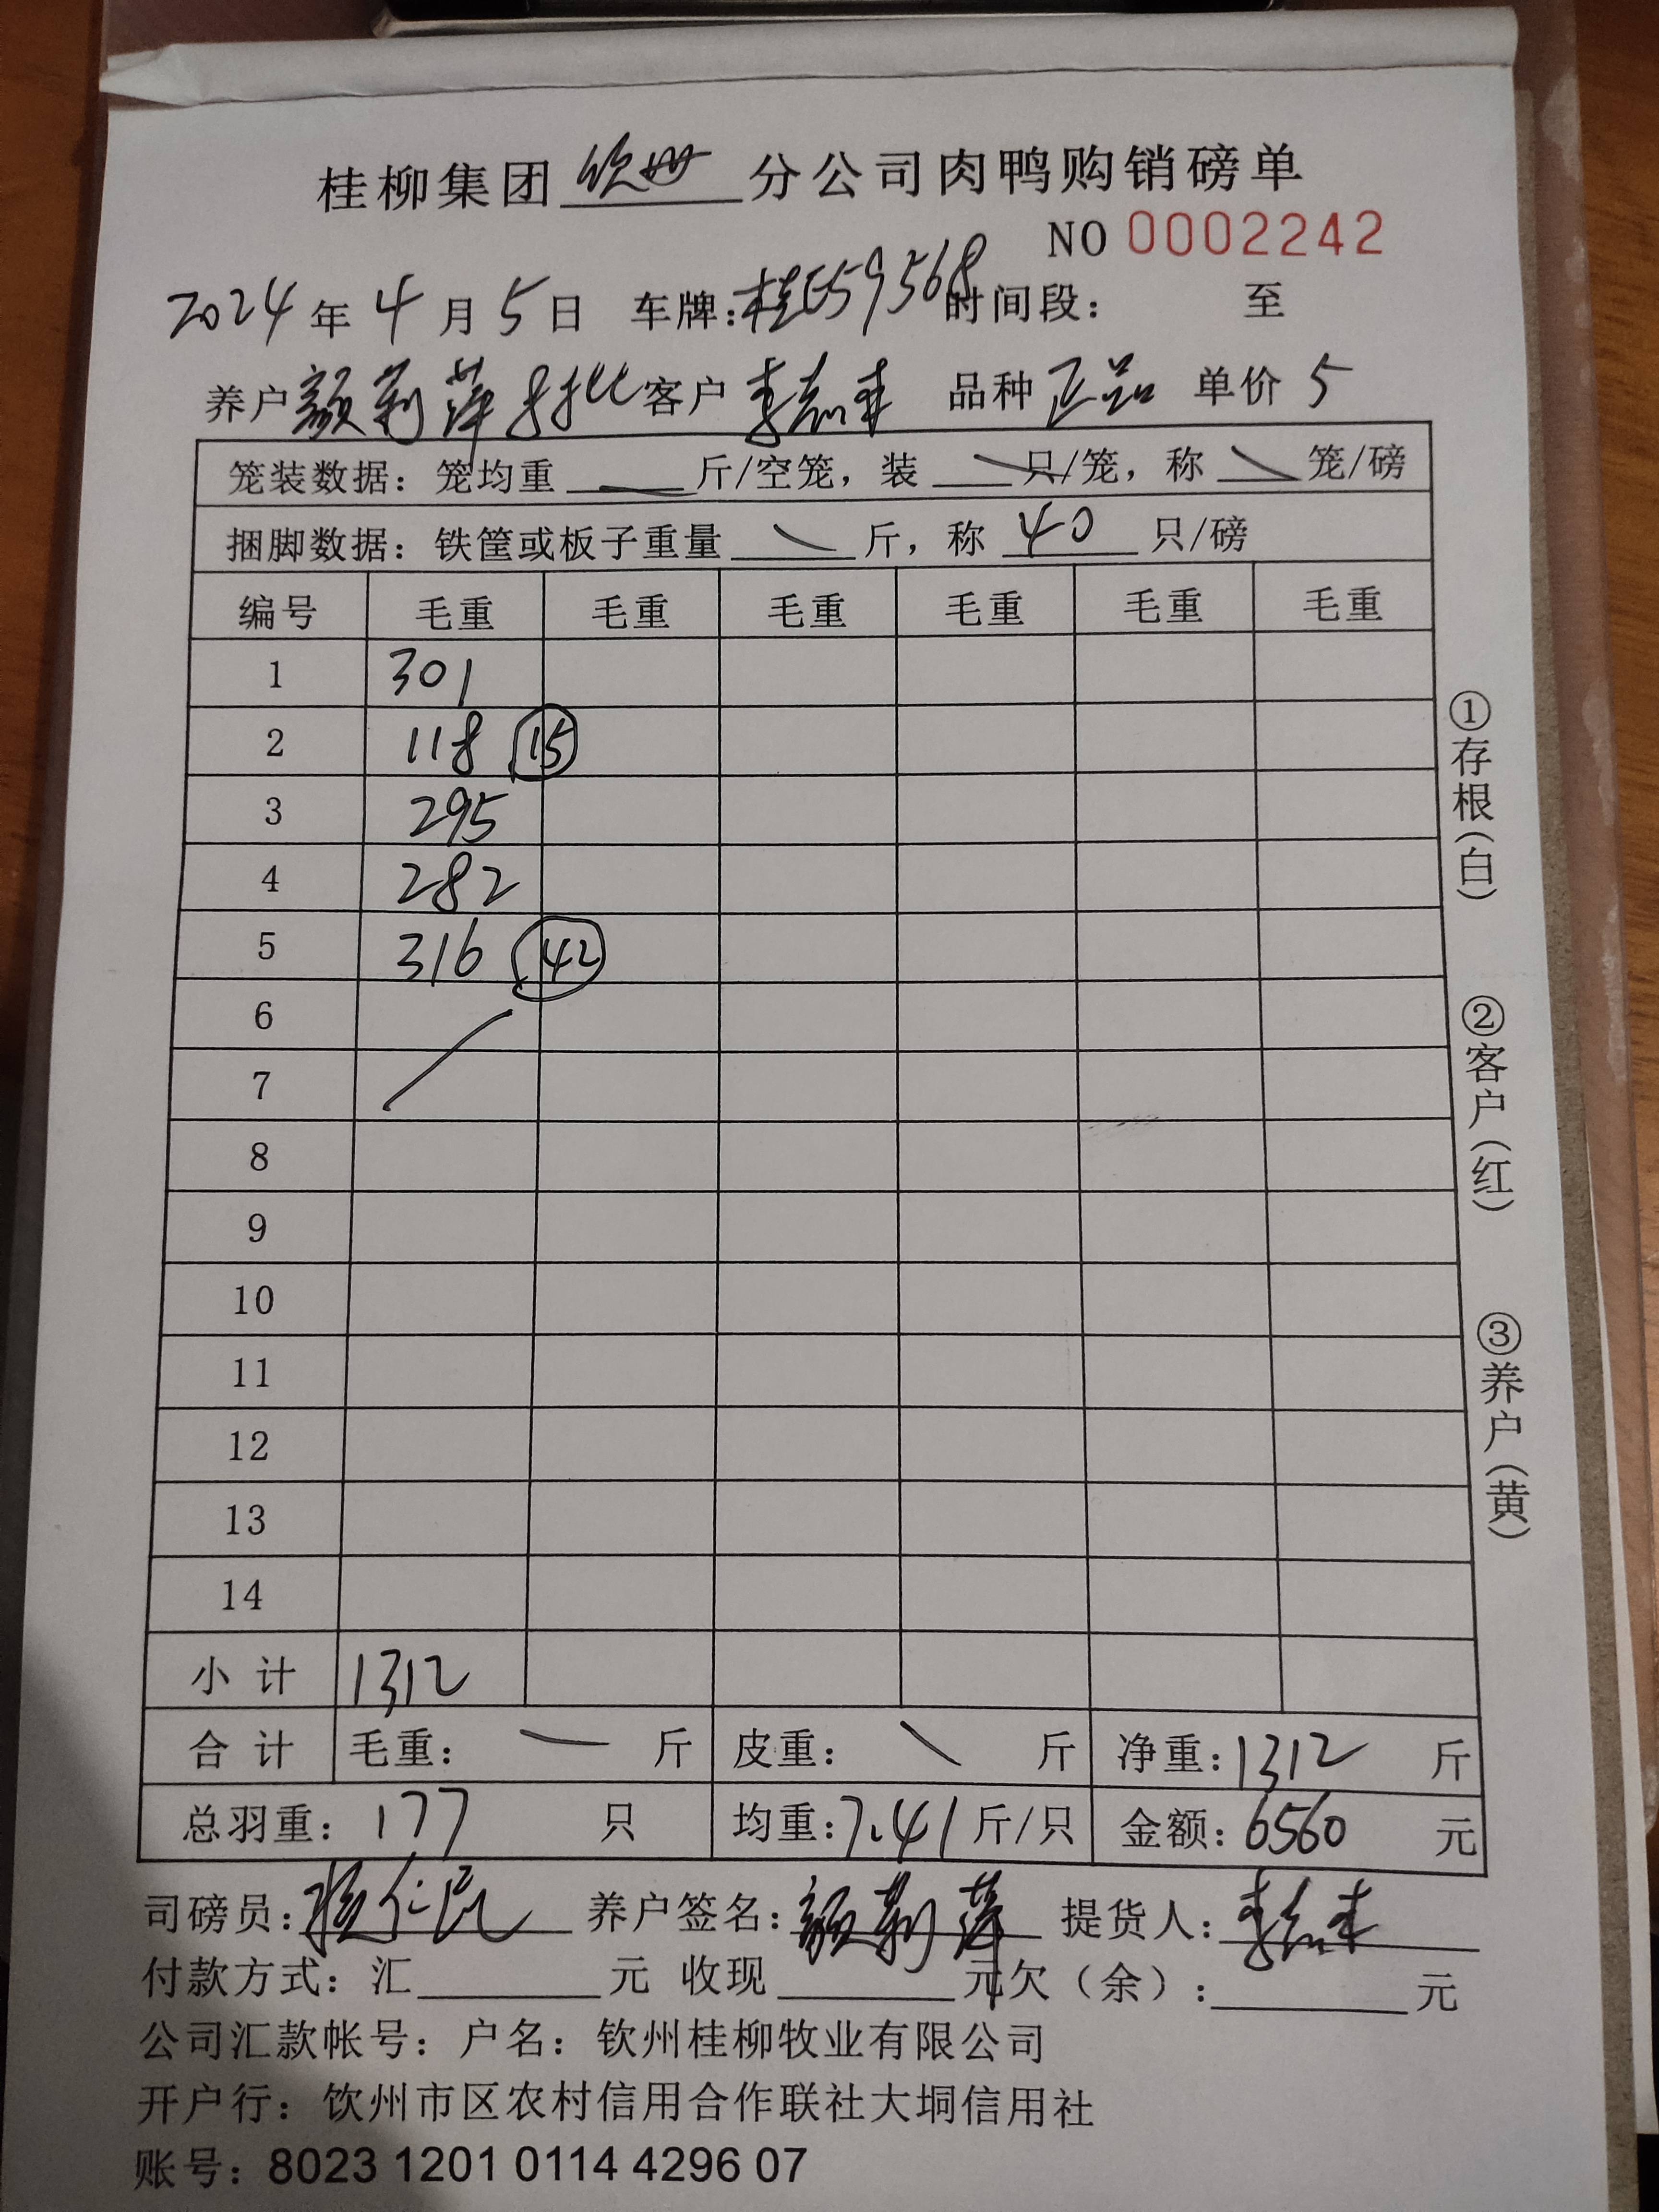 桂柳集团 钦州 分公司肉鸭购销磅单
NO 0002242
2024 年 4 月 5 日 车牌:桂E59568 时间段: 至
养户 颜莉萍 客户 李志来 品种 正品 单价 5
笼装数据: 笼均重 斤/空笼, 装 只/笼, 称 笼/磅
捆脚数据: 铁筐或板子重量 斤, 称 40 只/磅
编号 毛重 毛重 毛重 毛重 毛重 毛重
1 301
2 118 15
3 295
4 282
5 316 42
6
7
8
9
10
11
12
13
14
小计 1312
合计 毛重: 斤 皮重: 斤 净重: 1312 斤
总羽重: 177 只 均重: 7.41 斤/只 金额: 6560 元
司磅员: 杨仁民 养户签名: 颜莉萍 提货人: 李志来
付款方式: 汇 元 收现 元 欠(余): 元
公司汇款帐号: 户名: 钦州桂柳牧业有限公司
开户行: 钦州市区农村信用合作联社大垌信用社
账号: 8023 1201 0114 4296 07
①存根(白)
②客户(红)
③养户(黄)